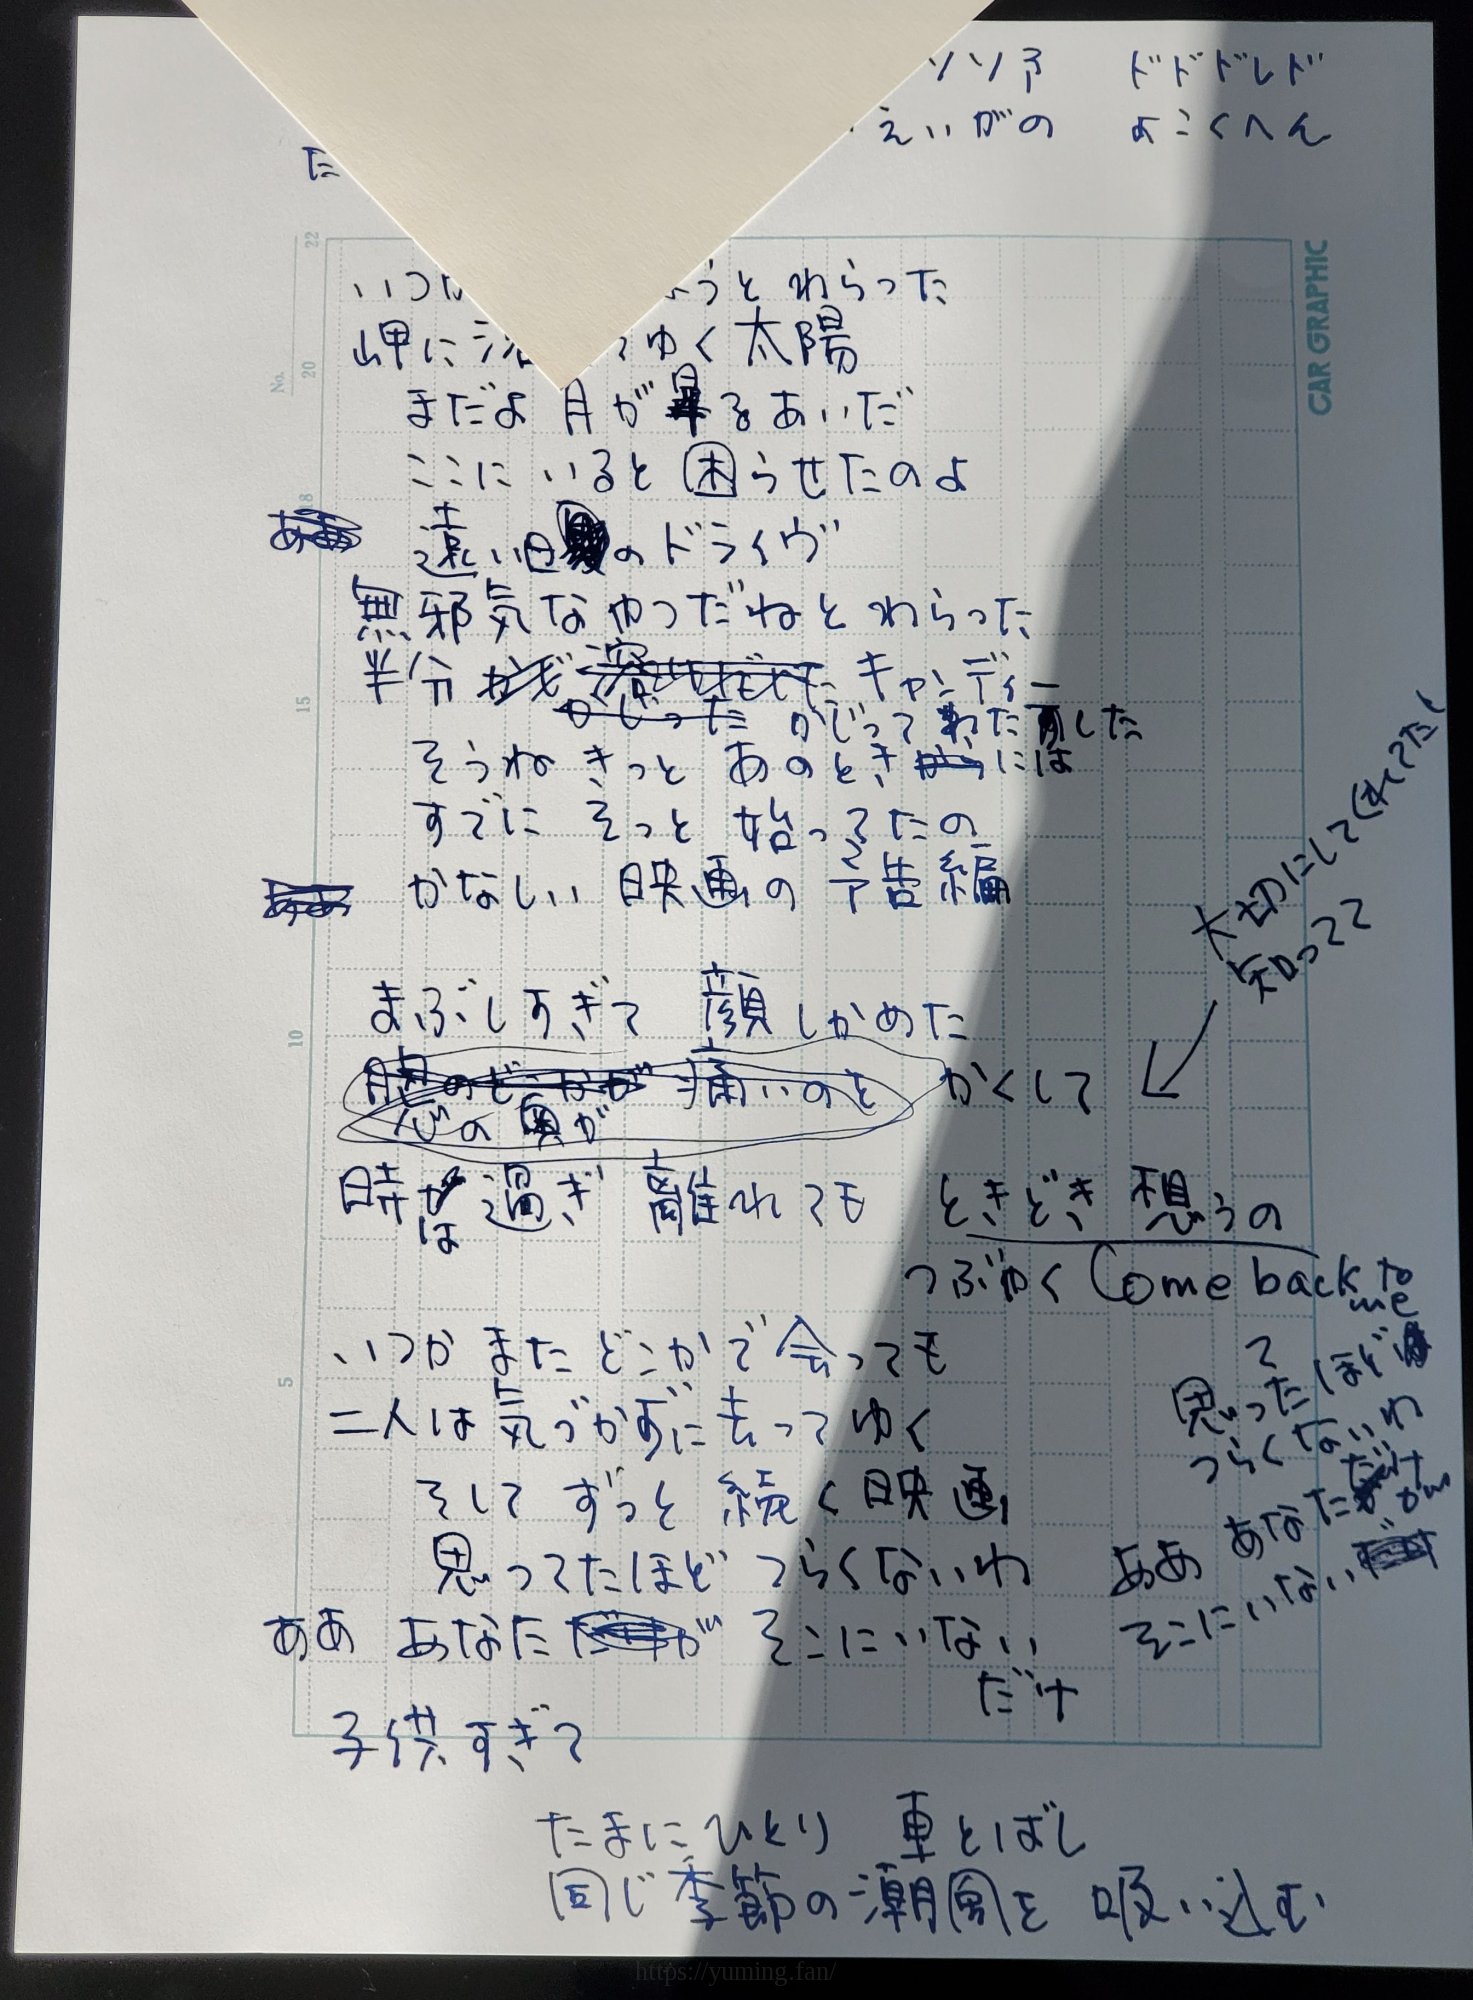 ソソファ ドドドレド
えいがの よこくへん
た
いつか うと わらった
岬に ゆく 太陽
まだよ 月が 昇るあいだ
ここに いると 困らせたのよ
遠い日のドライヴ
無邪気なやつだねと わらった
半分 キャンディー
かじった かじって わた した
そうね きっと あのとき には
すでに そっと 始ってたの
かなしい 映画の 予告編
大切にしてくれてたし
知ってて
まぶしすぎて 顔しかめた
胸のどこかが 痛いのを かくして
心の奥が
時が過ぎ 離れても ときどき 想うの
は
つぶやく Come back to me
いつか また どこかで 会っても
て
思ったほど
二人は気づかずに去ってゆく
つらくないわ
そして ずっと 続く 映画
あなた
思ってたほど つらくないわ
ああ
そこにいない
ああ あなた が そこにいない
だけ
子供すぎて
たまにひとり 車とばし
同じ季節の潮風を 吸い込む
CAR GRAPHIC
No.
22
20
18
15
10
5
https://yuming.fan/